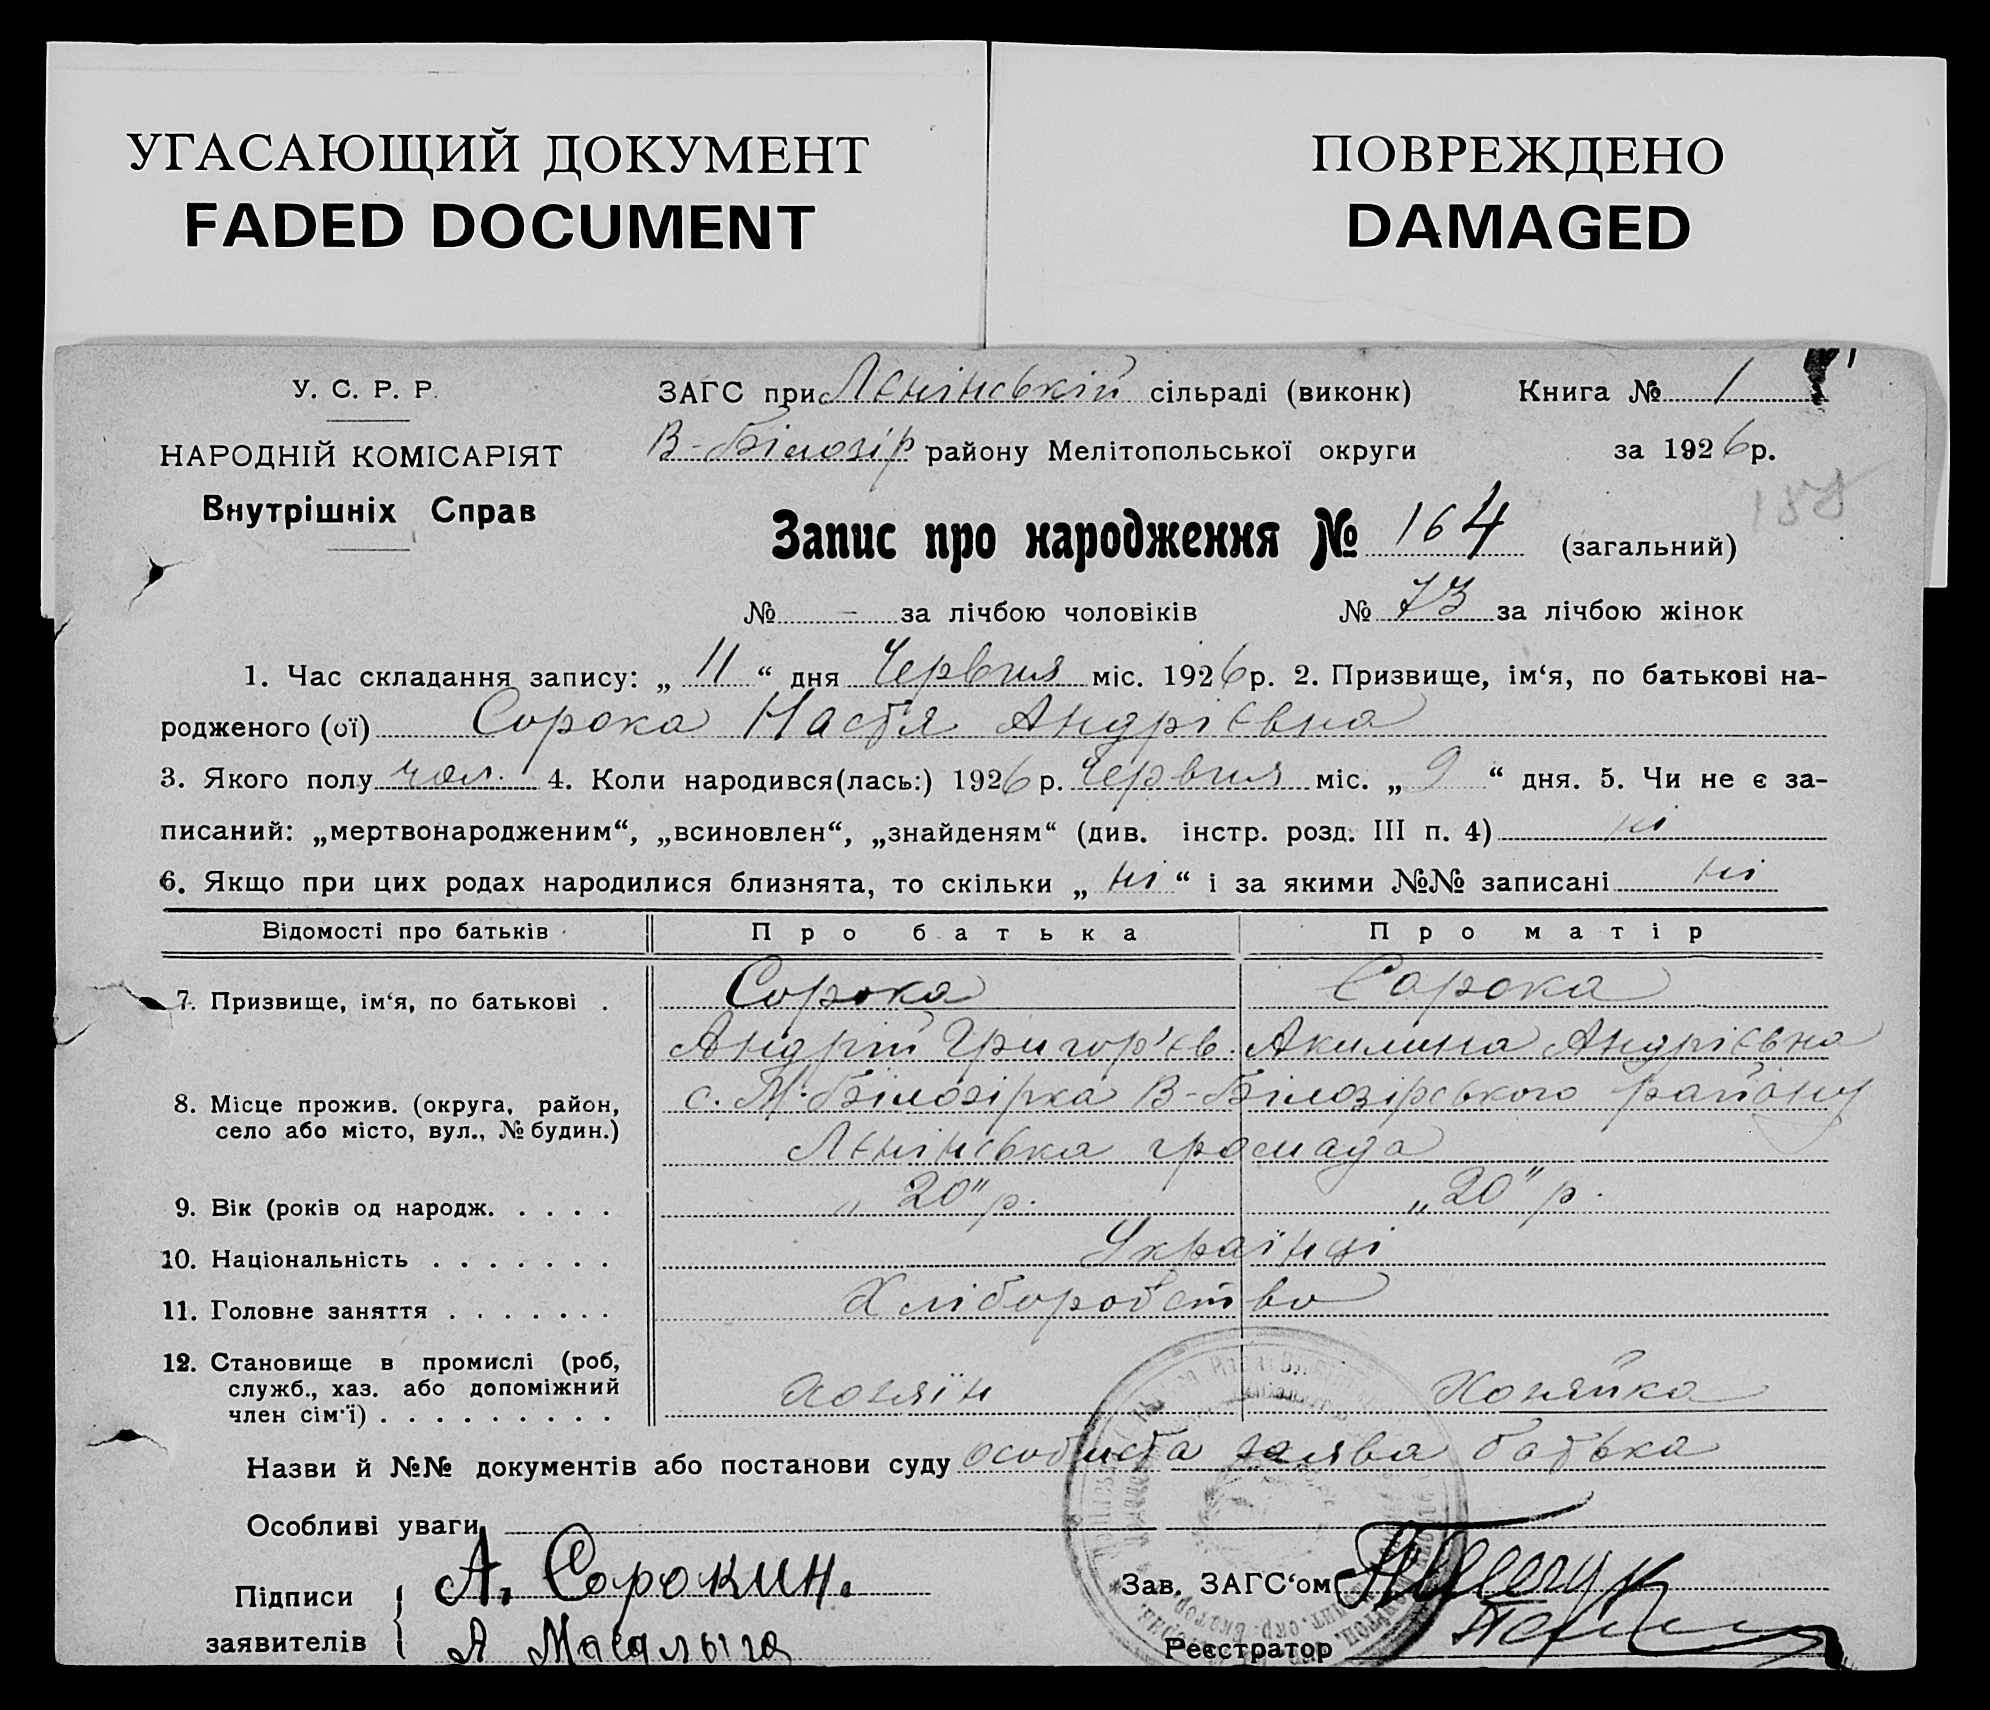 УГАСАЮЩИЙ ДОКУМЕНТ
FADED DOCUMENT
ПОВРЕЖДЕНО
DAMAGED
У. С. Р. Р.
НАРОДНІЙ КОМІСАРІЯТ
Внутрішніх Справ
ЗАГС при Ленінській сільраді (виконк)
Книга № 1
В-Білозір району Мелітопольської округи
за 1926 р.
158
Запис про народження № 164 (загальний)
№ - за лічбою чоловіків № 73 за лічбою жінок
1. Час складання запису: „ 11 “ дня Червня міс. 1926 р. 2. Призвище, ім‘я, по батькові на-
родженого (ої) Сорока Настя Андрієвна
3. Якого полу чол. 4. Коли народився(лась:) 1926 р. Червня міс. „ 9 “ дня. 5. Чи не є за-
писаний: „мертвонародженим“, „всиновлен“, „знайденям“ (див. інстр. розд. III п. 4) ні
6. Якщо при цих родах народилися близнята, то скільки „ ні “ і за якими №№ записані ні
Відомості про батьків Про батька Про матір
7. Призвище, ім‘я, по батькові . Сорока Сорока
Андрій Григор'єв. Акилина Андрієвна
8. Місце прожив. (округа, район, с. М-Білозірка В-Білозірського району
село або місто, вул., № будин.) Ленінська громада
9. Вік (років од народж. . . . . „20" р. „20" р.
10. Національність . . . . . . . Українці
11. Головне заняття . . . . . . . Хліборобство
12. Становище в промислі (роб,
служб., хаз. або допоміжний
член сім‘ї) . . . . . . . . . Хозяїн Хозяйка
Назви й №№ документів або постанови суду особиста заява батька
Особливі уваги
Підписи
заявителів
А. Сорокин.
Я Масалыга
Зав. ЗАГС‘ом
Реєстратор